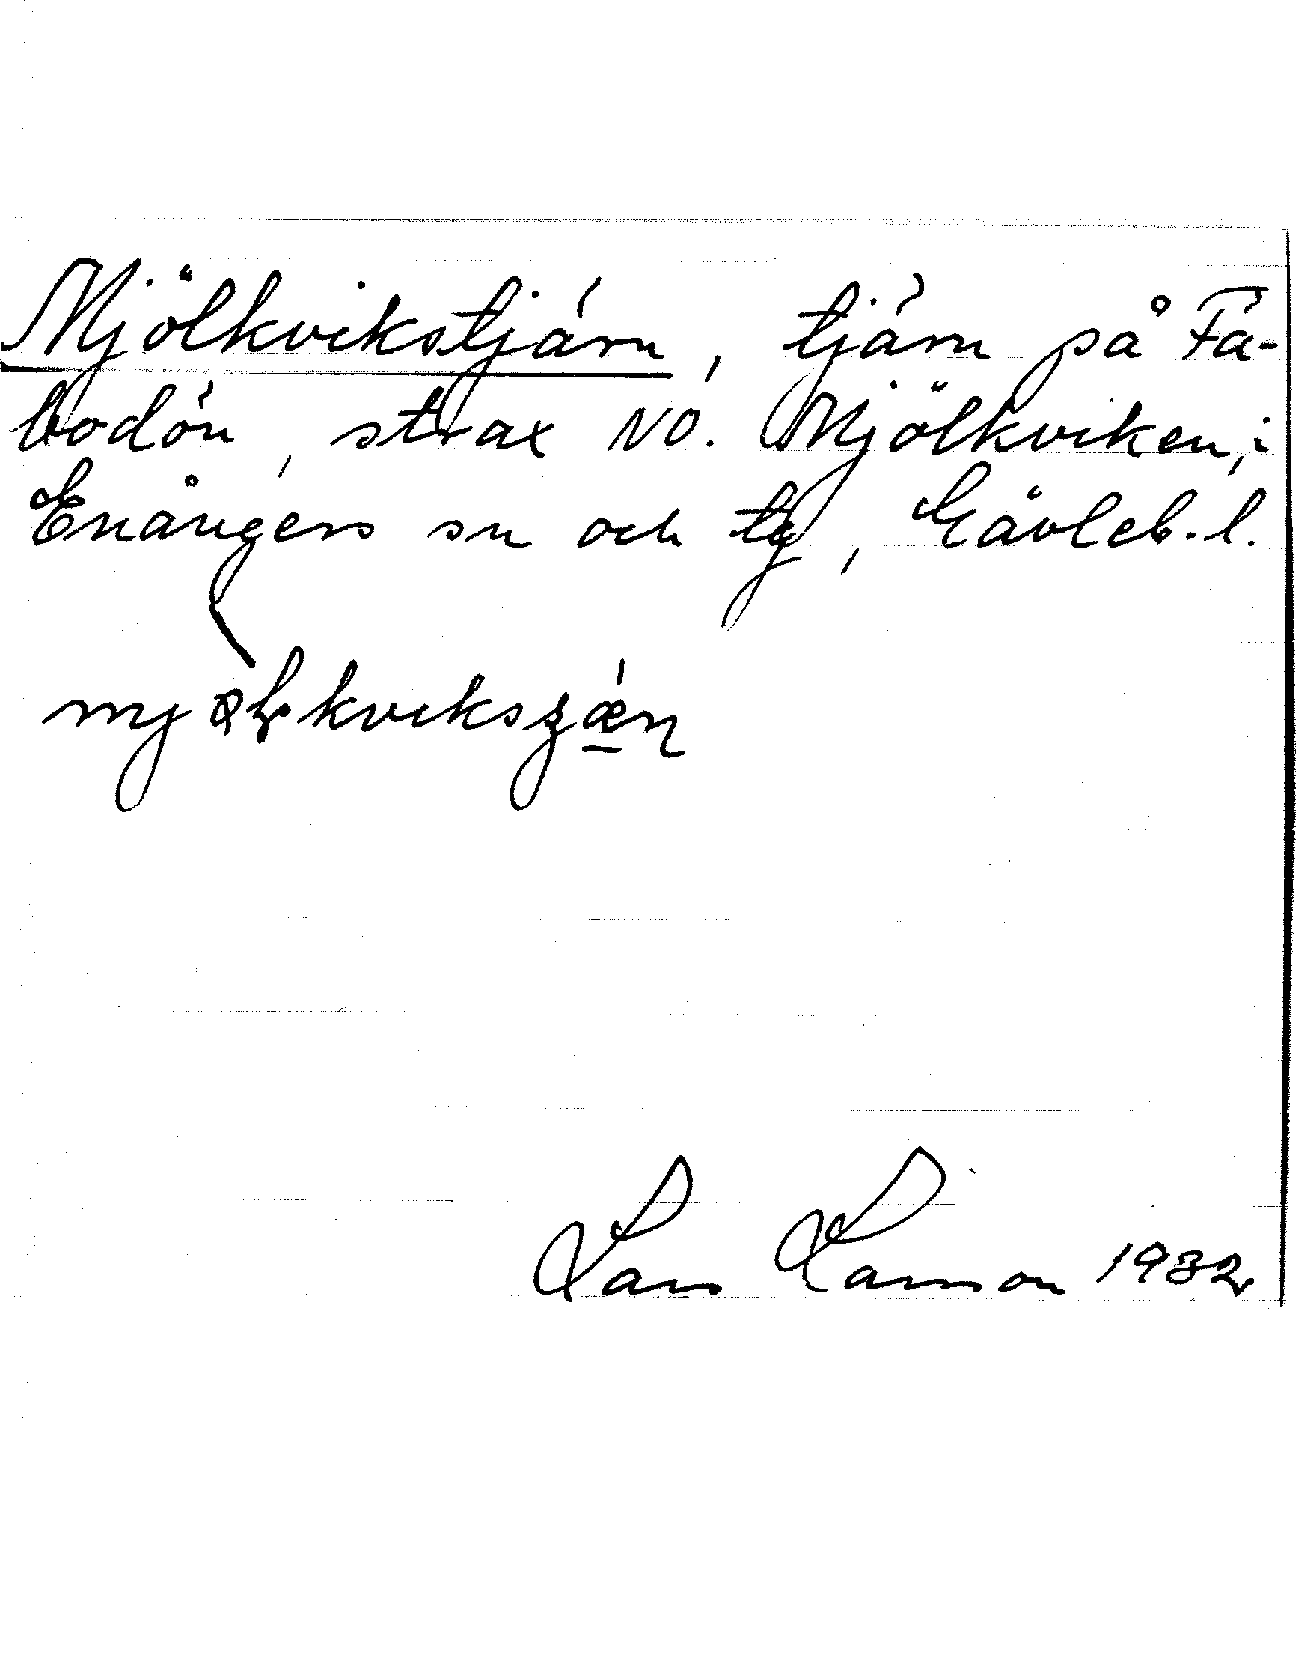 Mjölkvikstjärn, tjärn på Få-
bodön, strax NÖ. Mjölkviken, i
Enångers sn och tg, Gävleb. l.
Lars Larsson 1932